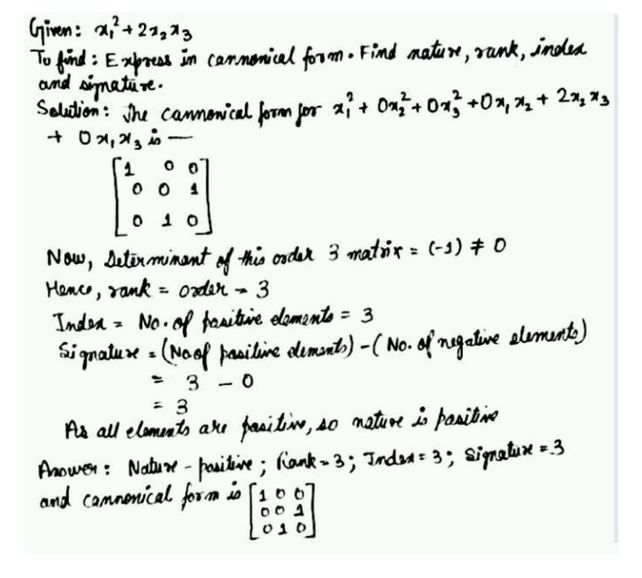 Given: x₁² + 2x₂x₃
To find: Express in cannonical form. Find nature, rank, index
and signature.
Solution: The cannonical form for x₁² + 0x₂² + 0x₃² + 0x₁x₂ + 2x₂x₃
+ 0x₁x₃ is —
[1 0 0]
[0 0 1]
[0 1 0]
Now, Determinant of this order 3 matrix = (-1) ≠ 0
Hence, rank = order = 3
Index = No. of positive elements = 3
Signature = (No of positive elements) - (No. of negative elements)
= 3 - 0
= 3
As all elements are positive, so nature is positive
Answer: Nature - positive; Rank = 3; Index = 3; Signature = 3
and cannonical form is [1 0 0]
[0 0 1]
[0 1 0]